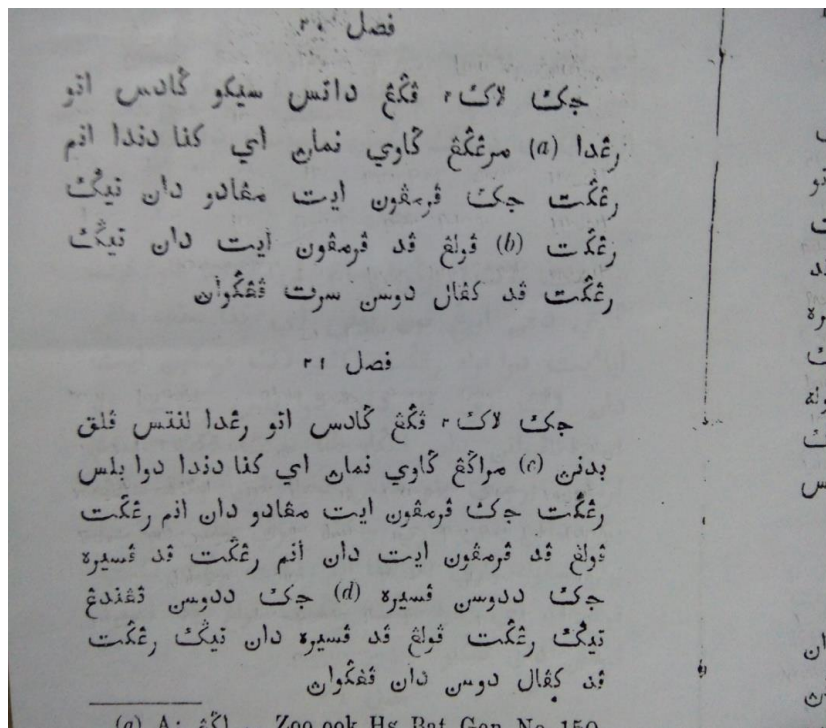 فصل ٢٠
جک لاک٢ ڤݢڠ داتس سيکو ݢادس اتو
رڠدا (a) مرڠݢڠ ݢاوي نمان اي کنا دندا انم
رڠݢت جک ڤرمڤون ايت مڠادو دان تيݢ
رڠݢت (b) ڤولڠ ڤد ڤرمڤون ايت دان تيݢ
رڠݢت ڤد کڤال دوسن سرت ڤڠݢوان
فصل ٢١
جک لاک٢ ڤݢڠ ݢادس اتو رڠدا لنتس ڤلق
بدنڽ (c) مراݢڠ ݢاوي نمان اي کنا دندا دوا بلس
رڠݢت جک ڤرمڤون ايت مڠادو دان انم رڠݢت
ڤولڠ ڤد ڤرمڤون ايت دان انم رڠݢت ڤد ڤسيره
جک ددوسن ڤسيره (d) جک ددوسن ڤڠندڠ
تيݢ رڠݢت ڤولڠ ڤد ڤسيره دان تيݢ رڠݢت
ڤد کڤال دوسن دان ڤڠݢوان